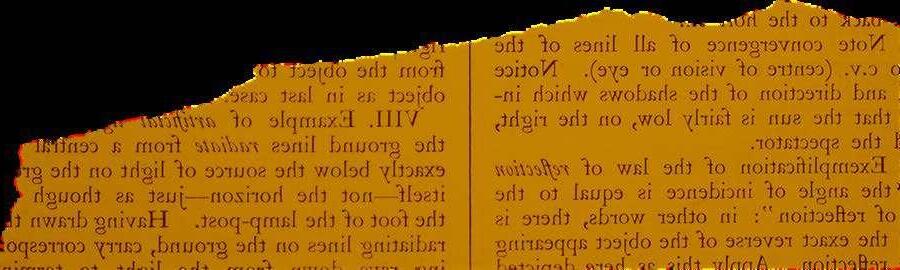 back to the
Note convergence of all lines of the
c.v. (centre of vision or eye). Notice
and direction of the shadows which in-
that the sun is fairly low, on the right,
the spectator.
Exemplification of the law of reflection
"the angle of incidence is equal to the
of reflection": in other words, there is
the exact reverse of the object appearing
reflection. Apply this as here depicted
from the object to
object as in last case.
VIII. Example of artificial
the ground lines radiate from a central
exactly below the source of light on the
itself—not the horizon—just as though
the foot of the lamp-post. Having drawn
radiating lines on the ground, carry
rays down from the light to